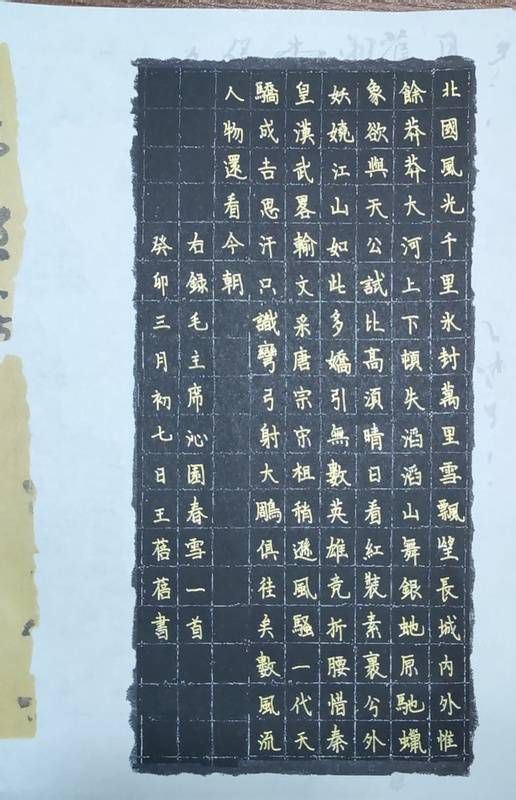 北國風光千里氷封萬里雪飄望長城内外惟
餘莽莽大河上下頓失滔滔山舞銀虵原馳蠟
象欲與天公試比高須晴日看紅裝素裹兮外
妖嬈江山如此多嬌引無數英雄竞折腰惜秦
皇漢武畧輸文采唐宗宋祖稍遜風騷一代天
驕成吉思汗只識彎弓射大鵰俱往矣數風流
人物還看今朝
右録毛主席沁園春雪一首
癸卯三月初七日王蓓蓓書